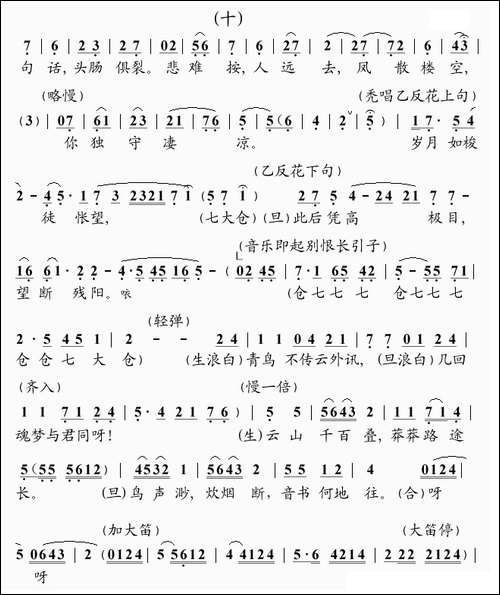 (十)
7 | 6 | 2 3 | 2 7 | 02 | 56 | 7 | 6 | 27 | 2 | 27 | 72 | 6 | 43 |
句 话, 头肠 俱裂。悲 难 按, 人 远 去, 凤 散 楼 空,
(略慢) (秃唱乙反花上句)
(3) | 07 | 61 | 23 | 21 | 76 | 5 | 5(6 | 4 | 2 | 5) | 17· 5 4
你 独 守 凄 凉。 岁月 如梭
(乙反花下句)
2 - 4 5 · 1 7 3 2321 7 1 (5 7 1) 2 7 5 4 - 24 21 7 7 -
徒 怅望, (七大仓) (旦)此后 凭 高 极目,
(音乐即起别恨长引子)
16 61 · 2 2 - 4·5 45 165 - (02 45 | 7·1 65 42 | 5 - 55 71 |
望 断 残阳。咳 (仓 七 七 七 仓 七 七 七
(轻弹)
2·5 45 1 | 2 - - 24 | 1 1 04 21 | 7 7 01 24 |
仓 仓 七 大 仓) (生浪白)青鸟 不传云外讯, (旦浪白)几回
(齐入) (慢一倍)
1 1 71 24 | 5·4 21 76 | 5 5 | 5643 2 | 11 714 |
魂梦与君同呀! (生)云 山 千百 叠, 莽莽 路 途
5 (55 5612) | 4532 1 | 5643 2 | 55 12 | 4 0124 |
长。 (旦)鸟 声 渺, 炊烟 断, 音书 何地 往。(合)呀
(加大笛) (大笛停)
5 0643 | 2 (0124 | 5 5612 | 4 4124 | 5·6 4214 | 2 22 2124) |
呀